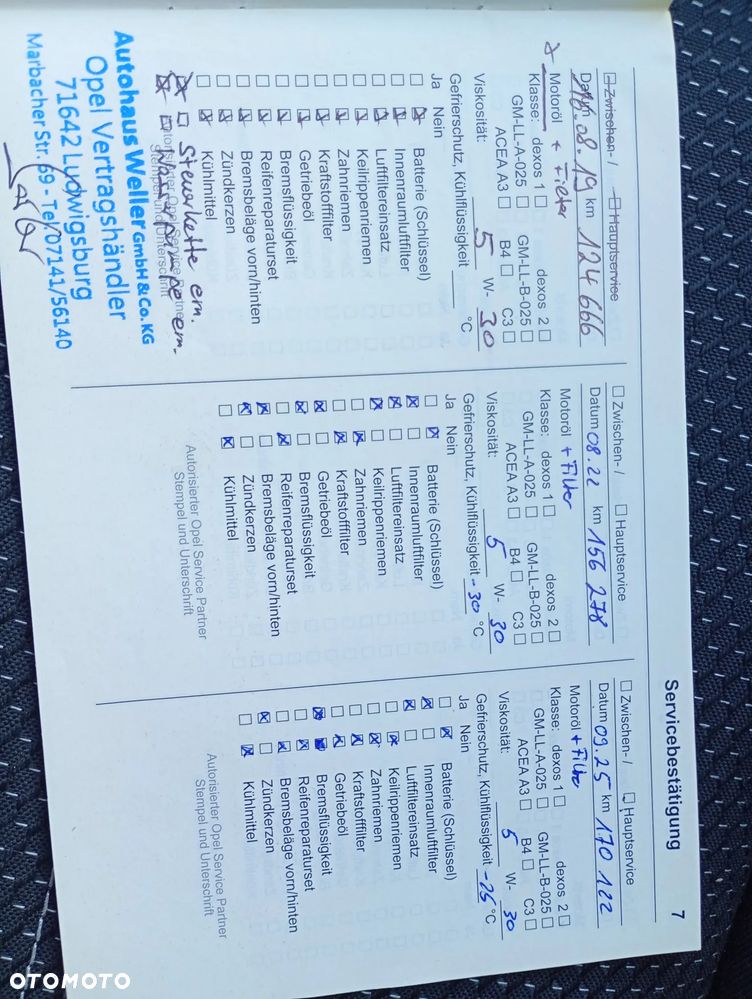 Servicebestätigung
7
Zwischen- / Hauptservice
Datum 16.08.19 km 124 666
Motoröl + Filter
Klasse: dexos 1 dexos 2
GM-LL-A-025 GM-LL-B-025
ACEA A3 B4 C3
Viskosität: 5 W- 30
Gefrierschutz, Kühlflüssigkeit °C
Ja Nein
Batterie (Schlüssel)
Innenraumluftfilter
Luftfiltereinsatz
Keilrippenriemen
Zahnriemen
Kraftstofffilter
Getriebeöl
Bremsflüssigkeit
Reifenreparaturset
Bremsbeläge vorn/hinten
Zündkerzen
Kühlmittel
Steuerkette ern.
ern.
Autohaus Weller GmbH & Co. KG
Opel Vertragshändler
71642 Ludwigsburg
Marbacher Str. 69 - Tel 07141/56140
Zwischen- / Hauptservice
Datum 08.22 km 156 278
Motoröl + Filter
Klasse: dexos 1 dexos 2
GM-LL-A-025 GM-LL-B-025
ACEA A3 B4 C3
Viskosität: 5 W- 30
Gefrierschutz, Kühlflüssigkeit -30 °C
Ja Nein
Batterie (Schlüssel)
Innenraumluftfilter
Luftfiltereinsatz
Keilrippenriemen
Zahnriemen
Kraftstofffilter
Getriebeöl
Bremsflüssigkeit
Reifenreparaturset
Bremsbeläge vorn/hinten
Zündkerzen
Kühlmittel
Autorisierter Opel Service Partner
Stempel und Unterschrift
Zwischen- / Hauptservice
Datum 09.25 km 170 122
Motoröl + Filter
Klasse: dexos 1 dexos 2
GM-LL-A-025 GM-LL-B-025
ACEA A3 B4 C3
Viskosität: 5 W- 30
Gefrierschutz, Kühlflüssigkeit -25 °C
Ja Nein
Batterie (Schlüssel)
Innenraumluftfilter
Luftfiltereinsatz
Keilrippenriemen
Zahnriemen
Kraftstofffilter
Getriebeöl
Bremsflüssigkeit
Reifenreparaturset
Bremsbeläge vorn/hinten
Zündkerzen
Kühlmittel
Autorisierter Opel Service Partner
Stempel und Unterschrift
OTOMOTO